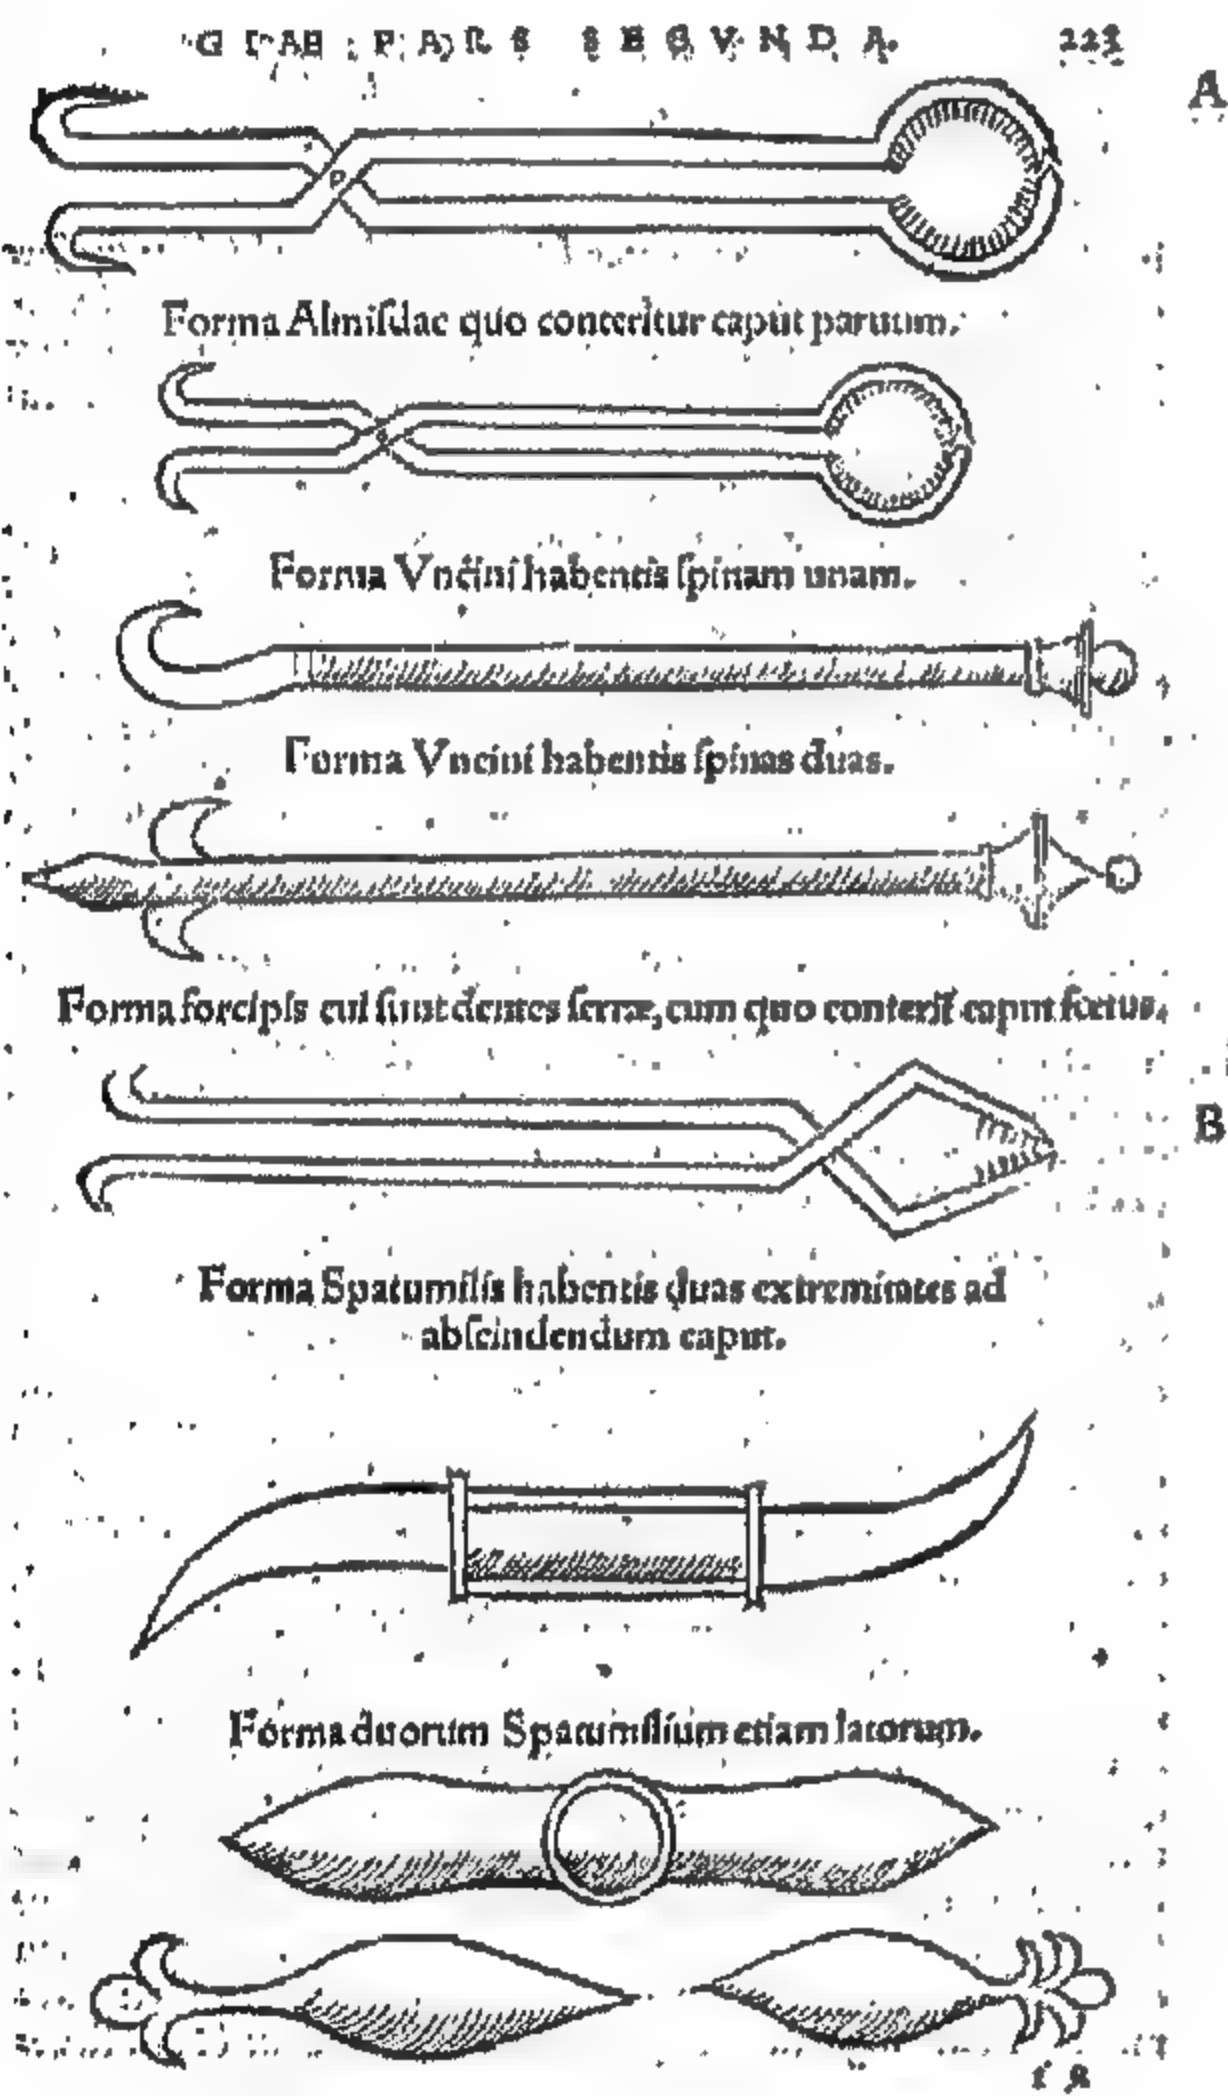 GIAE PARS SEGVNDA. 225
A
Forma Almiſdac quo conteritur caput paruum.
Forma Vncini habentis ſpinam unam.
Forma Vncini habentis ſpinas duas.
Forma forcipis cui ſunt dentes ſerræ, cum quo conterit̃ caput fœtus.
B
Forma Spatumilis habentis duas extremitates ad
abſcindendum caput.
Forma duorum Spatumilium etiam latorum.